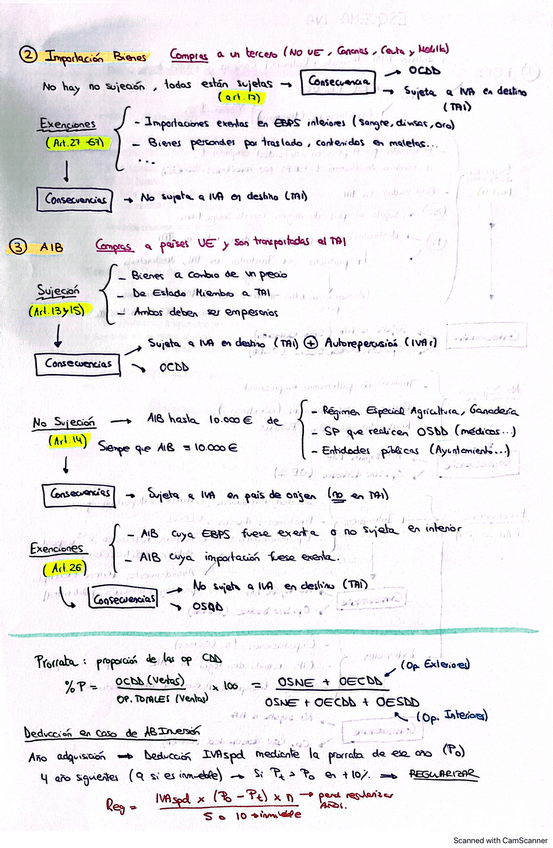 ② Importación Bienes   Compras a un tercero (NO UE, Canarias, Ceuta y Melilla)
No hay no sujeción, todas están sujetas → Consecuencia → OCDD
(art. 17) → Sujeta a IVA en destino (TAI)
Exenciones - Importaciones exentas en EBPS interiores (sangre, divisas, oro)
(Art. 27 - 67) - Bienes personales por traslado, contenidos en maletas...
...
Consecuencias → No sujeta a IVA en destino (TAI)
③ AIB   Compras a países UE y son transportadas al TAI
- Bienes a cambio de un precio
Sujeción - De Estado Miembro a TAI
(Art. 13 y 15) - Ambos deben ser empresarios
→ Sujeta a IVA en destino (TAI) ⊕ Autorepercusión (IVAr)
Consecuencias → OCDD
No Sujeción → AIB hasta 10.000 € de - Régimen Especial Agricultura, Ganadería
(Art. 14) Siempre que AIB = 10.000 € - SP que realicen OSDD (médicos...)
- Entidades públicas (Ayuntamiento...)
Consecuencias → Sujeta a IVA en país de origen (no en TAI)
- AIB cuya EBPS fuese exenta o no sujeta en interior
Exenciones - AIB cuya importación fuese exenta.
(Art. 26) → No sujeta a IVA en destino (TAI)
Consecuencias → OSDD
Prorrata: proporción de las op CDD
(Op. Exteriores)
% P = OCDD (Ventas) / OP. TOTALES (Ventas) x 100 = OSNE + OECDD / OSNE + OECDD + OESDD
(Op. Interiores)
Deducción en caso de AB Inversión
Año adquisición → Deducción IVAspd mediante la prorrata de ese año (Po)
4 año siguientes (9 si es inmueble) → Si Pt > Po en +10% → REGULARIZAR
Reg = IVAspd x (Po - Pt) x n → pend regularizar AÑOS.
5 o 10 → inmueble
Scanned with CamScanner